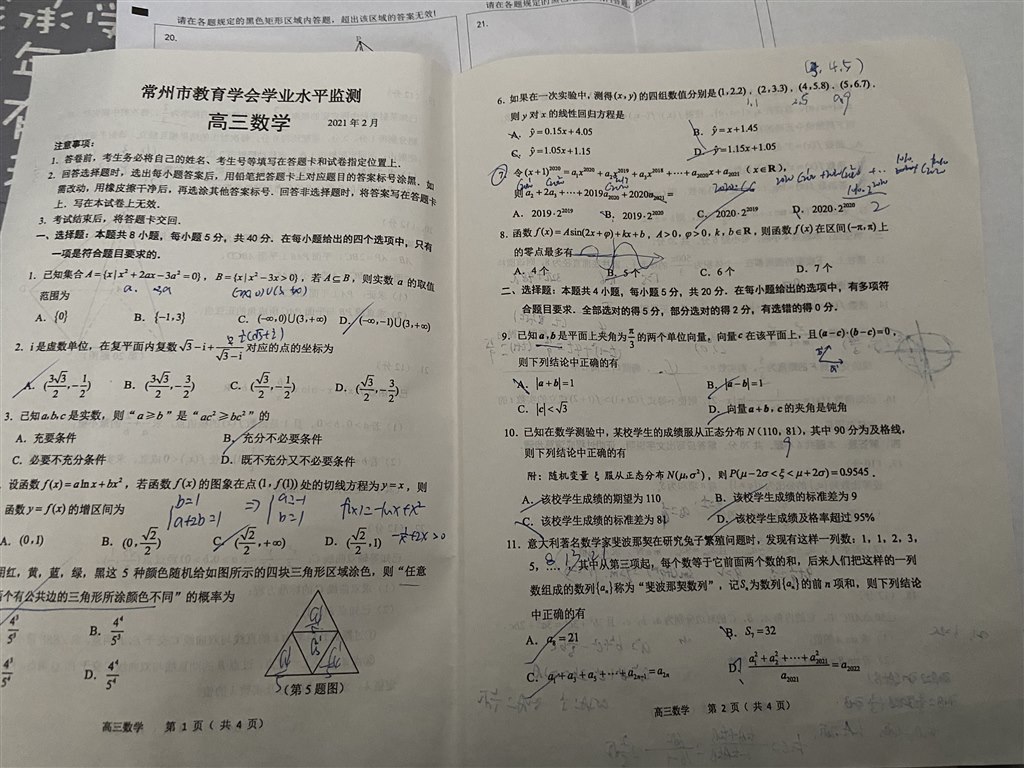 请在各题规定的黑色矩形区域内答题，超出该区域的答案无效!
20.
21.
常州市教育学会学业水平监测
高三数学 2021年2月
注意事项:
1. 答卷前，考生务必将自己的姓名、考生号等填写在答题卡和试卷指定位置上.
2. 回答选择题时，选出每小题答案后，用铅笔把答题卡上对应题目的答案标号涂黑. 如
需改动，用橡皮擦干净后，再选涂其他答案标号. 回答非选择题时，将答案写在答题卡
上. 写在本试卷上无效.
3. 考试结束后，将答题卡交回.
一、选择题: 本题共8小题，每小题5分，共40分. 在每小题给出的四个选项中，只有
一项是符合题目要求的.
1. 已知集合A={x|x²+2ax-3a²=0}，B={x|x²-3x>0}，若A⊆B，则实数a的取值
范围为
A. {0} B. {-1,3} C. (-∞,0)∪(3,+∞) D. (-∞,-1)∪(3,+∞)
2. i是虚数单位，在复平面内复数√3-i+√3/(√3-i)对应的点的坐标为
A. (3√3/2,-1/2) B. (3√3/2,-3/2) C. (√3/2,-1/2) D. (√3/2,-3/2)
3. 已知a,b,c是实数，则“a≥b”是“ac²≥bc²”的
A. 充要条件 B. 充分不必要条件
C. 必要不充分条件 D. 既不充分又不必要条件
设函数f(x)=alnx+bx²，若函数f(x)的图象在点(1,f(1))处的切线方程为y=x，则
函数y=f(x)的增区间为
b=1
a+2b=1
⇒
a=-1
b=1
f(x)=-lnx+x²
A. (0,1) B. (0,√2/2) C. (√2/2,+∞) D. (√2/2,1)
用红，黄，蓝，绿，黑这5种颜色随机给如图所示的四块三角形区域涂色，则“任意
个有公共边的三角形所涂颜色不同”的概率为
4³/5³ B. 4⁴/5³
4³/5⁴ D. 4⁴/5⁴
(第5题图)
高三数学 第1页(共4页)
6. 如果在一次实验中，测得(x,y)的四组数值分别是(1,2.2)，(2,3.3)，(4,5.8)，(5,6.7)，
则y对x的线性回归方程是
A. ŷ=0.15x+4.05 B. ŷ=x+1.45
C. ŷ=1.05x+1.15 D. ŷ=1.15x+1.05
7 令(x+1)²⁰²⁰=a₁x²⁰²⁰+a₂x²⁰¹⁹+a₃x²⁰¹⁸+⋯+a₂₀₂₀x+a₂₀₂₁ (x∈R)，
则a₂+2a₃+⋯+2019a₂₀₂₀+2020a₂₀₂₁=
A. 2019·2²⁰¹⁹ B. 2019·2²⁰²⁰ C. 2020·2²⁰¹⁹ D. 2020·2²⁰²⁰
8. 函数f(x)=Asin(2x+φ)+kx+b，A>0，φ>0，k，b∈R，则函数f(x)在区间(-π,π)上
的零点最多有
A. 4个 B. 5个 C. 6个 D. 7个
二、选择题: 本题共4小题，每小题5分，共20分. 在每小题给出的选项中，有多项符
合题目要求. 全部选对的得5分，部分选对的得2分，有选错的得0分.
9. 已知a,b是平面上夹角为π/3的两个单位向量，向量c在该平面上，且(a-c)·(b-c)=0，
则下列结论中正确的有
A. |a+b|=1 B. |a-b|=1
C. |c|<√3 D. 向量a+b，c的夹角是钝角
10. 已知在数学测验中，某校学生的成绩服从正态分布N(110,81)，其中90分为及格线，
则下列结论中正确的有
9
附: 随机变量ξ服从正态分布N(μ,σ²)，则P(μ-2σ<ξ<μ+2σ)=0.9545.
A. 该校学生成绩的期望为110 B. 该校学生成绩的标准差为9
C. 该校学生成绩的标准差为81 D. 该校学生成绩及格率超过95%
11. 意大利著名数学家斐波那契在研究兔子繁殖问题时，发现有这样一列数: 1，1，2，3，
5，…. 8,13,21 其中从第三项起，每个数等于它前面两个数的和，后来人们把这样的一列
数组成的数列{aₙ}称为“斐波那契数列”，记Sₙ为数列{aₙ}的前n项和，则下列结论
中正确的有
A. a₈=21 B. S₇=32
C. a₁+a₃+a₅+⋯+a₂ₙ₋₁=a₂ₙ D. (a₁²+a₂²+⋯+a₂₀₂₁²)/a₂₀₂₁=a₂₀₂₂
高三数学 第2页(共4页)